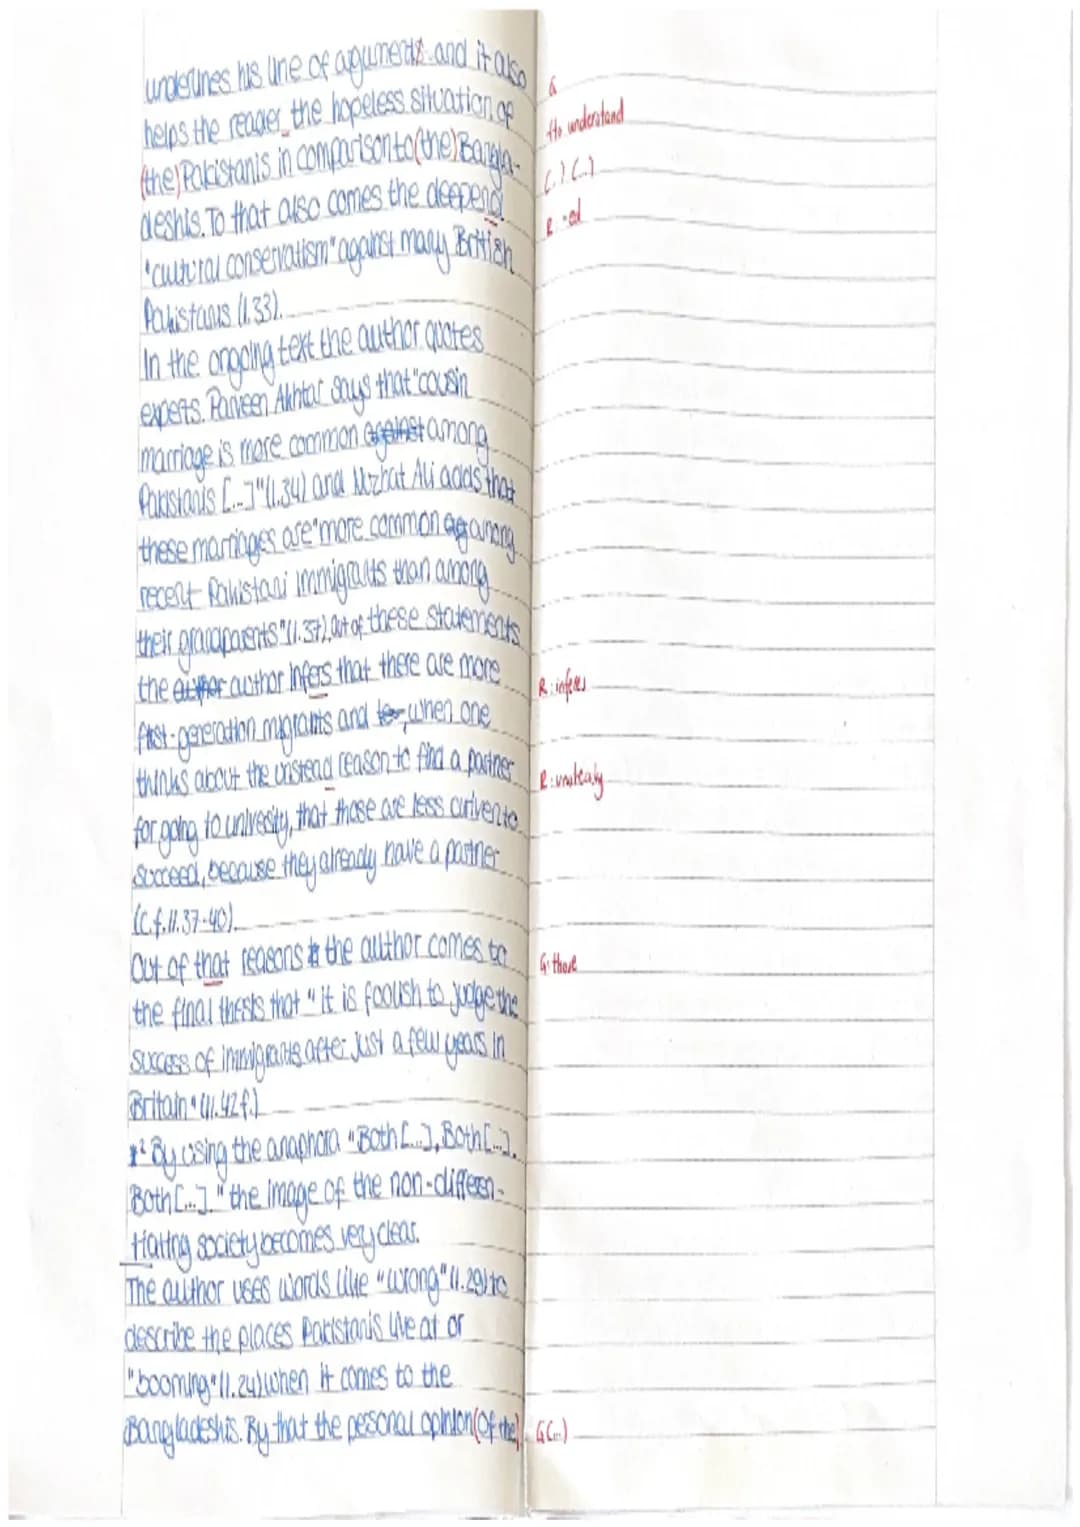 underlines his line of arguments and it also
helps the reader the hopeless situation of
(the) Pakistanis in comparison to (the) Bangla-
deshis. To that also comes the deepend
"cultural conservatism" against many British
Pakistanis (l.33).
In the ongoing text the author quotes
experts. Parveen Akhtar says that "cousin
marriage is more common against among
Pakistanis [...]" (l.34) and Nuzhat Ali adds that
these marriages are "more common ag among
recent Pakistani immigrants than among
their grandparents" (l.37). Out of these statements
the author author infers that there are more
first-generation migrants and , when one
thinks about the unstead reason to find a partner
for going to univesity, that those are less driven to
succeed, because they already have a partner
(c.f. ll. 37-40).
Out of that reasons the author comes to
the final thesis that "it is foolish to judge the
success of immigrants after just a few years in
Britain" (ll. 42f.)
*² By using the anaphora "Both [...], Both [...].
Both [...]." the image of the non-differen-
tiating society becomes very clear.
The author uses words like "wrong" (l.29) to
describe the places Pakistanis live at or
"booming" (l.24) when it comes to the
Bangladeshis. By that the personal opinion (of the)
to understand
(..) (..)
R -ed
R: inferes
R:
G: those
G(...)